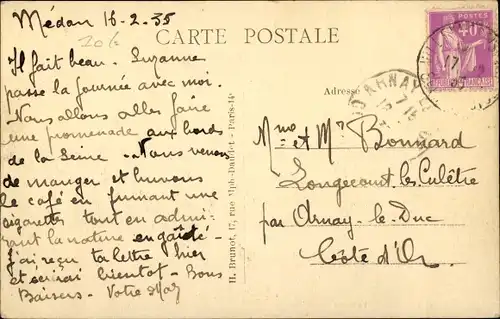 Médan 16-2-35
CARTE POSTALE
POSTES
40c
Il fait beau. Suzanne
passe la journée avec moi.
Nous allons aller faire
une promenade aux bords
de la Seine. Nous venons
de manger et buvons
le café en fumant une
cigarette tout en admi-
rant la nature en gaieté -
J'ai reçu ta lettre hier
et écrirai bientôt - Bons
Baisers - Votre
Adresse
ARNAY-LE-
H. Brunot, 17, rue Alph-Daudet - Paris-14e
Mme et Mr Bonnard
Longecourt les Culêtre
par Arnay-le-Duc
Côte d'Or